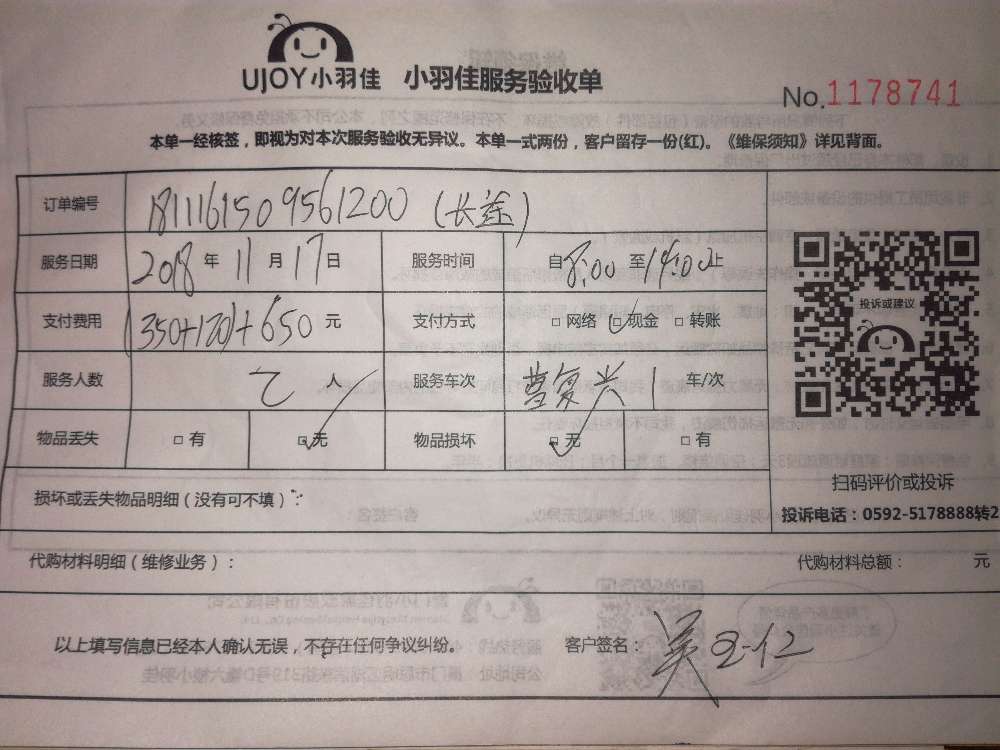 UJOY小羽佳 小羽佳服务验收单
No.1178741
本单一经核签，即视为对本次服务验收无异议。本单一式两份，客户留存一份(红)。《维保须知》详见背面。
订单编号 1811161509561200 (长途)
服务日期 2018 年 11 月 17 日 服务时间 自 8:00 至 19:00 止
支付费用 (350+120)+650 元 支付方式 □ 网络 □ 现金 □ 转账
服务人数 乙 人 服务车次 曹复兴 1 车/次
物品丢失 □ 有 □ 无 物品损坏 □ 无 □ 有
投诉或建议
损坏或丢失物品明细（没有可不填）：
扫码评价或投诉
投诉电话：0592-5178888转2
代购材料明细（维修业务）： 代购材料总额： 元
以上填写信息已经本人确认无误，不存在任何争议纠纷。 客户签名： 吴